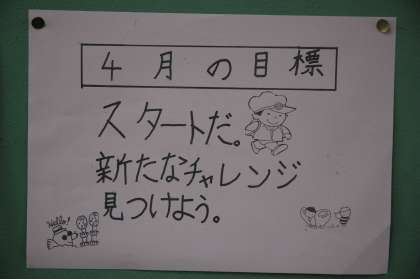 4月の目標
スタートだ。
新たなチャレンジ
見つけよう。
Hello!